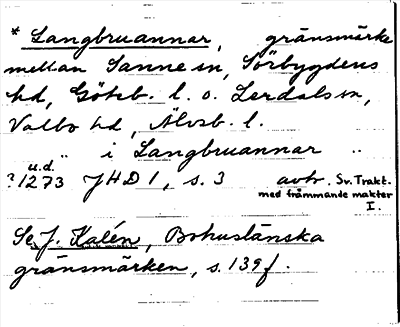 * Langbruannar, gränsmärke
mellan Sanne sn, Sörbygdens
hd, Göteb. l. o. Lerdals sn,
Valbo hd, Älvsb. l.
" i Langbruannar "
u.d.
?1273 JHD 1, s. 3 avtr. Sv. Trakt.
med främmande makter
I.
Se J. Kalén, Bohuslänska
gränsmärken, s. 139 f.